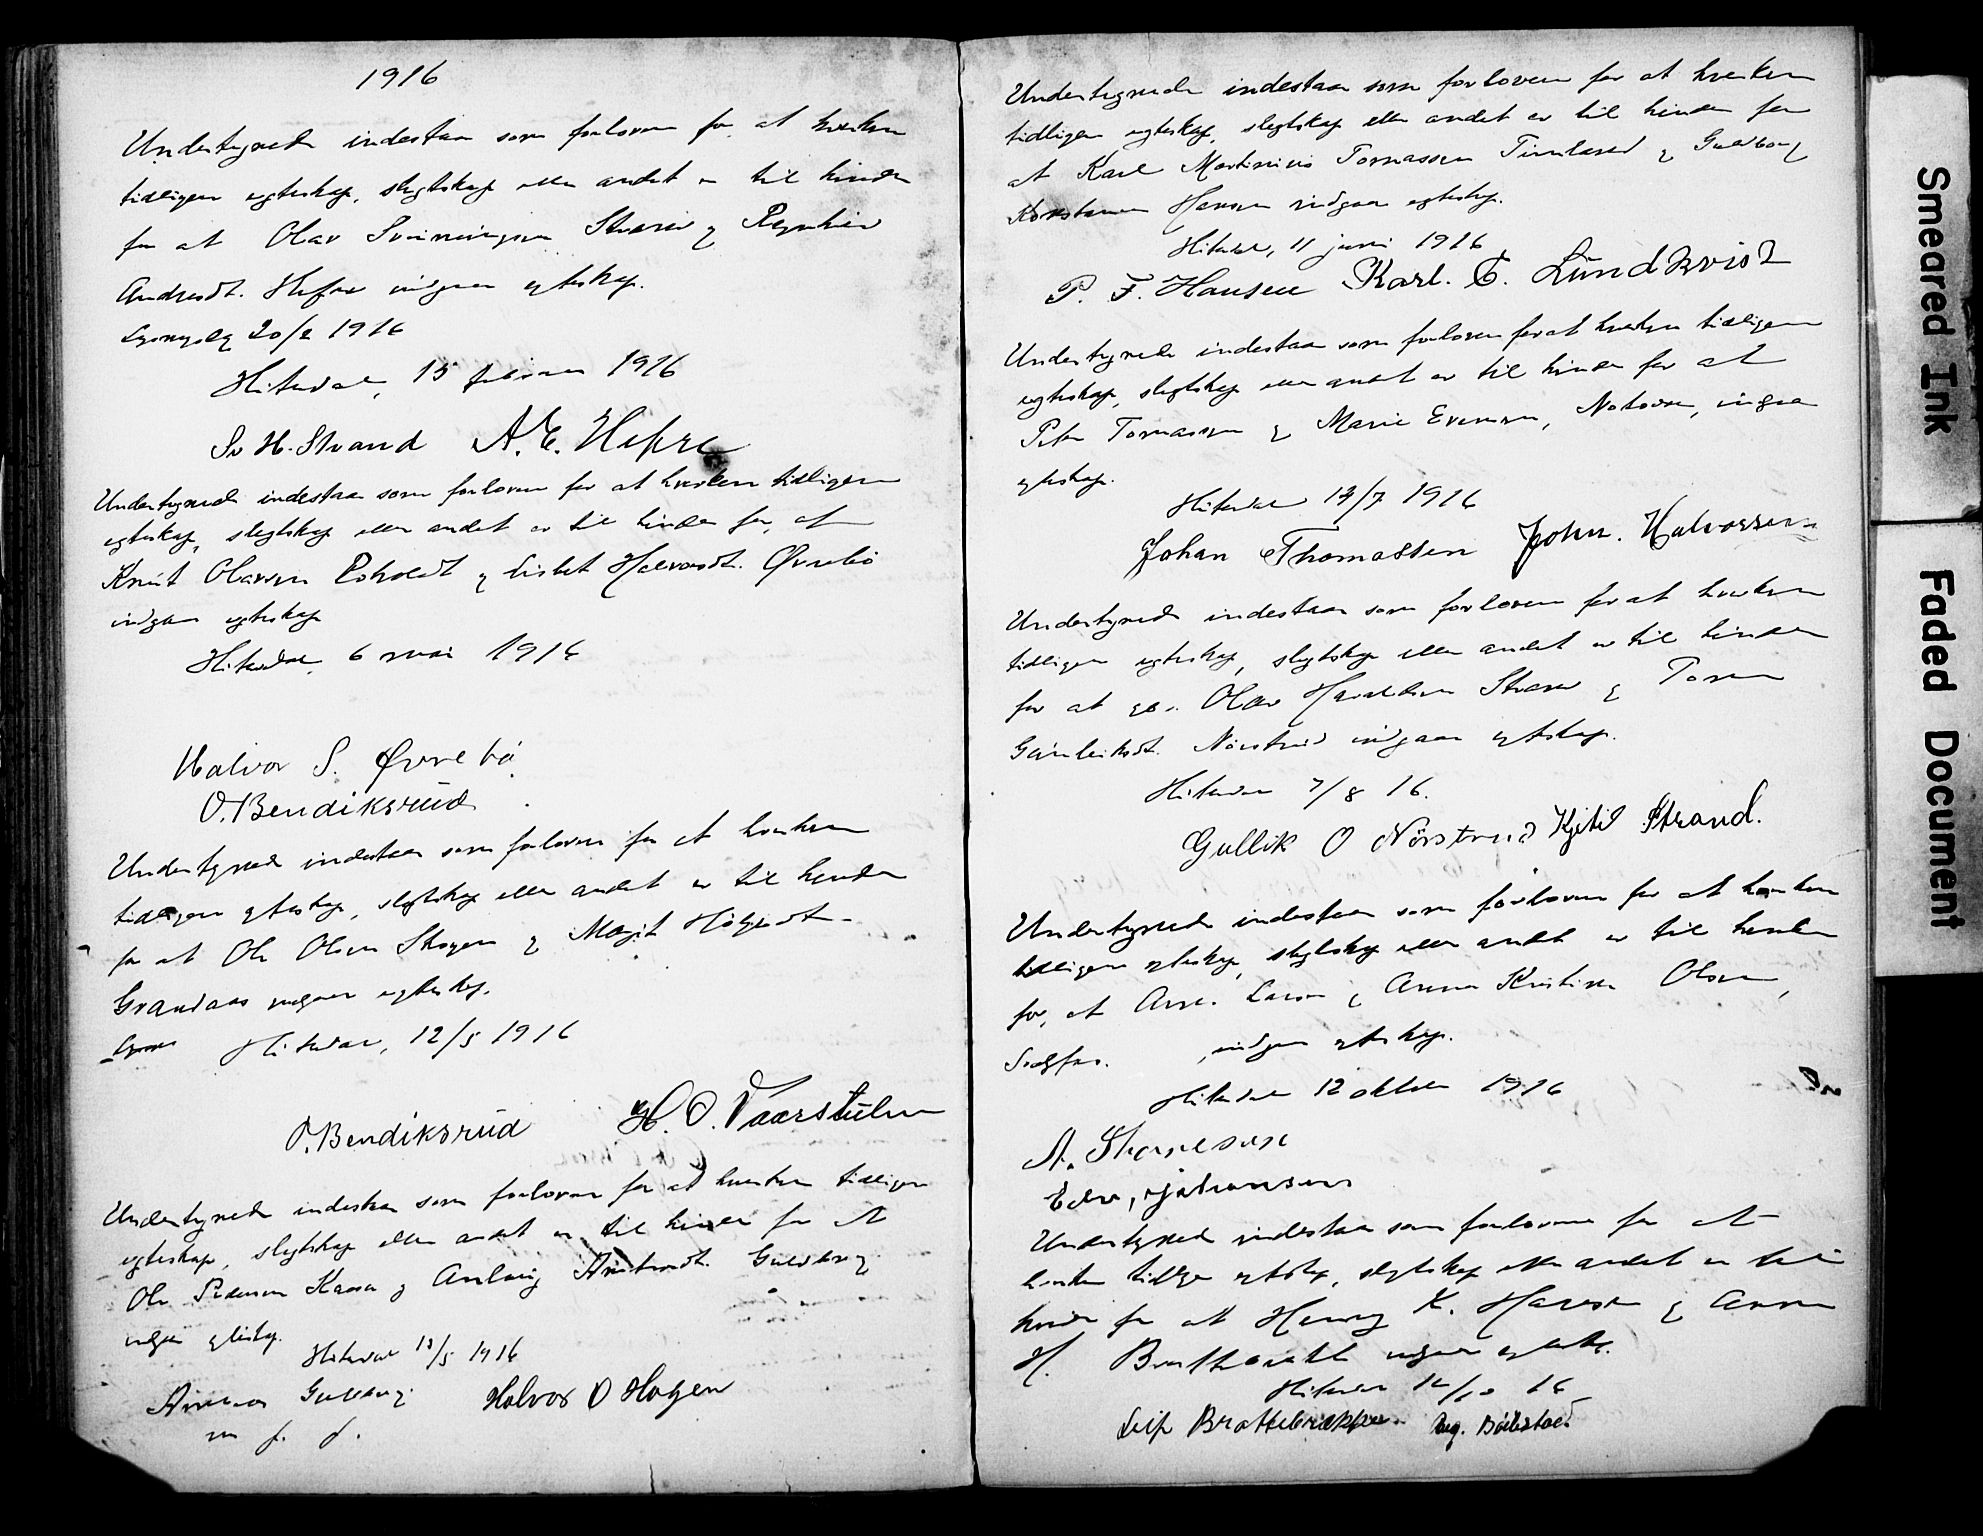 1916
Undertegnede indestaar som forlovere for at hverken
tidligere egteskap, slegtskap eller andet er til hinder
for at Olav Sveinungsen Strand og Ragnhild
Andresdt. Hefre indgaar egteskap.
20/2 1916
Hiterdal, 15 februar 1916
Sv H. Strand A. E. Hefre
Undertegnede indestaar som forlovere for at hverken tidligere
egteskap, slegtskap eller andet er til hinder for, at
Knut Olavsen og Lisbet Halvorsdt. Øvrebø
indgaar egteskap
Hiterdal, 6 mai 1916
Halvor S. Øvrebø
O. Bendiksrud
Undertegnede indestaar som forlovere for at hverken
tidligere egteskap, slegtskap eller andet er til hinder
for at Ole Olsen Skogen og Margit Helgesdt.
Grandaas indgaar egteskap.
Hiterdal, 12/5 1916
O. Bendiksrud H. O. Vaarstulen
Undertegnede indestaar som forlovere for at hverken tidligere
egteskap, slegtskap eller andet er til hinder for at
Ole Pedersen Kaasa og Anlaug Guldberg
indgaar egteskap.
Hiterdal 13/5 1916
Guldberg Halvor O Haugen
m f. p.
Undertegnede indestaar som forlovere for at hverken
tidligere egteskap, slegtskap eller andet er til hinder for
at Karl Martinius Tomassen og Guldborg
Konstanse Hansen indgaar egteskap.
Hiterdal, 11 juni 1916
P. F. Hansen Karl. E. Lundkvist
Undertegnede indestaar som forlovere for at hverken tidligere
egteskap, slegtskap eller andet er til hinder for at
Peter Tomassen og Marie Evensen, Notodden, indgaar
egteskap.
Hiterdal 14/7 1916
Johan Thomassen John. Halvorsen
Undertegnede indestaar som forlovere for at hverken
tidligere egteskap, slegtskap eller andet er til hinder
for at Olav Haraldsen Strand og Torne
Gunleiksdt. Nørstrud indgaar egteskap.
Hiterdal 7/8 16.
Gullik O Nørstrud Kjetil Strand.
Undertegnede indestaar som forlovere for at hverken
tidligere egteskap, slegtskap eller andet er til hinder
for, at Larsen og Anna Kristine Olsen,
indgaar egteskap.
Hiterdal 12 oktober 1916
A.
Edv. Johansen
Undertegnede indestaar som forlovere for at
hverken tidlige egteskap, slegtskap eller andet er til
hinder for at Henry K. Hansen og Anna
H. indgaar egteskap.
Hiterdal 16
Leif Brattebrække. Aug. Bølestad
Smeared Ink
Faded Document